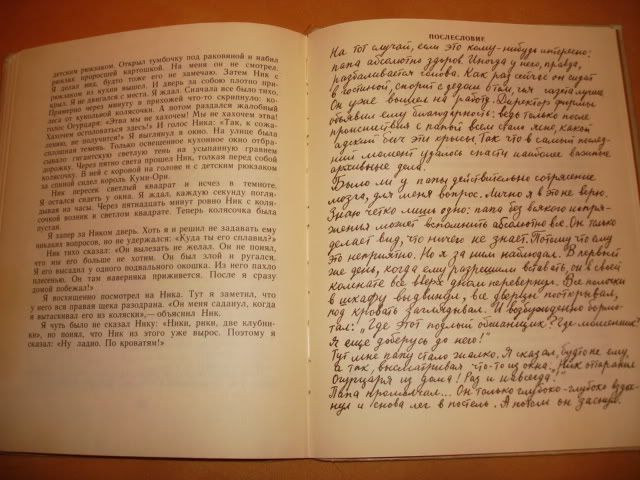 детским рюкзаком. Открыл тумбочку под раковиной и набил
рюкзак проросшей картошкой. На меня он не смотрел.
Я делал вид, будто тоже его не замечаю. Затем Ник с
рюкзаком из кухни вышел. И дверь за собою плотно при-
крыл. Я не двигался с места. Я ждал. Сначала все было тихо.
Примерно через минуту в прихожей что-то скрипнуло: ко-
леса от кукольной колясочки. А потом раздался жалобный
голос Огурцаря: «Этва мы не хахочем! Мы не хахочем этва!
Хахочем вспозоваться здесь!» И голос Ника: «Так, к сожа-
лению, не получится!» Я выглянул в окно. На улице была
сплошная темень. Только освещенное кухонное окно отбра-
сывало гигантскую светлую тень на усыпанную гравием
дорожку. Через пятно света прошел Ник, толкая перед собой
колясочку. В ней с короной на голове и с детским рюкзаком
за спиной сидел король Куми-Ори.
Ник пересек светлый квадрат и исчез в темноте.
Я остался сидеть у окна. Я ждал, каждую секунду погля-
дывая на часы. Через пятнадцать минут ровно Ник с коля-
сочкой возник в светлом квадрате. Теперь колясочка была
пустая.
Я запер за Ником дверь. Хоть я и решил не задавать ему
никаких вопросов, но не удержался: «Куда ты его сплавил?»
Ник тихо сказал: «Он вылезать не желал. Он не понял,
что мы его больше не хотим. Он был злой и ругался.
Я его высадил у одного подвального окошка. Из него пахло
плесенью. Он там наверняка приживется. После я сразу
домой побежал!»
Я восхищенно посмотрел на Ника. Тут я заметил, что
у него вся правая щека разодрана. «Он меня саданул, когда
я вытаскивал его из коляски»,— объяснил Ник.
Я чуть было не сказал Нику: «Ники, рики, две клубни-
ки», но понял, что Ник из этого уже вырос. Поэтому я
сказал: «Ну ладно. По кроватям!»
ПОСЛЕСЛОВИЕ
На тот случай, если это кому-нибудь интересно:
папа абсолютно здоров. Иногда у него, правда,
разбаливается голова. Как раз сейчас он сидит
в гостиной, спорит с дедом о том, чья газета лучше.
Он уже вышел на работу. Директор фирмы
объявил ему благодарность: ведь только после
происшествия с папой всем стало ясно, какой
адский бич эти крысы. Так что в самый послед-
ний момент удалось спасти наиболее важные
архивные дела.
Было ли у папы действительно сотрясение
мозга, для меня вопрос. Лично я в это не верю.
Знаю четко лишь одно: папа без всякого напря-
жения может вспомнить абсолютно все. Он только
делает вид, что ничего не знает. Потому что ему
это неприятно. Но я за ним наблюдал. В первый
же день, когда ему разрешили вставать, он в своей
комнате все вверх дном перевернул. Все полочки
в шкафу выдвинул, все дверцы пооткрывал,
под кровать заглядывал. И возбужденно бормо-
тал: „Где этот подлый обманщик? Где мошенник?
Я еще доберусь до него!"
Тут мне папу стало жалко. Я сказал, будто не ему,
а так, высматривая что-то из окна: „Ник отправил
Огурцаря из дома! Раз и навсегда!"
Папа промолчал... Он только глубоко-глубоко вздох-
нул и снова лег в постель. А потом он заснул.